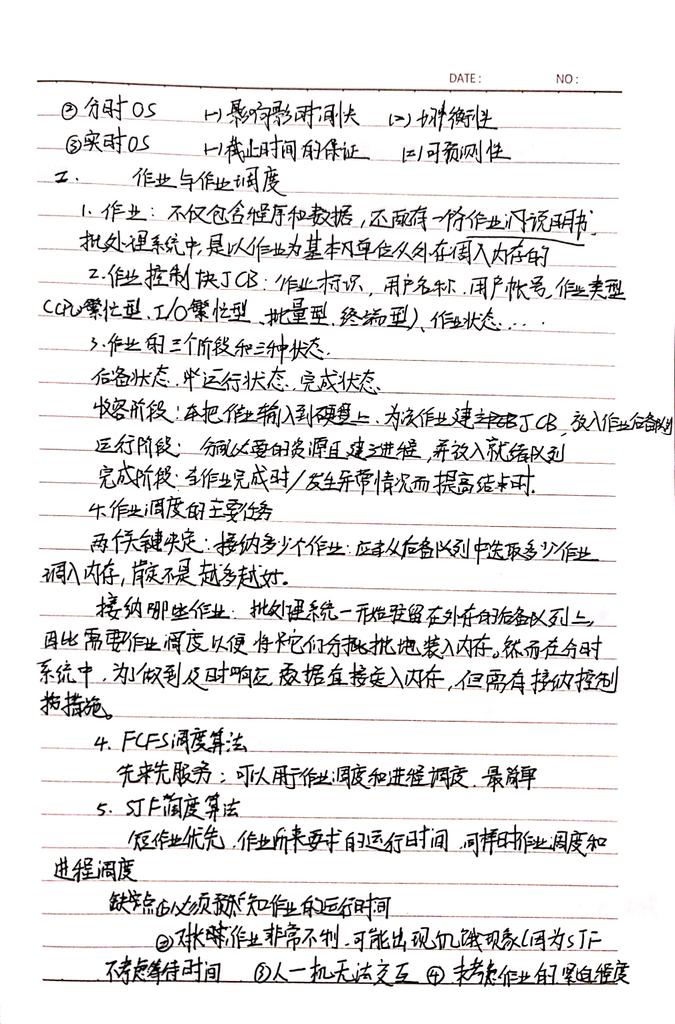 DATE: NO:
② 分时OS (一) 响应时间快 (二) 均衡性
③ 实时OS (一) 截止时间的保证 (二) 可预测性
二. 作业与作业调度
1. 作业: 不仅包含程序和数据, 还配有一份作业说明书,
批处理系统中, 是以作业为基本单位从外存调入内存的
2. 作业控制块JCB: 作业标识, 用户名称, 用户帐号, 作业类型
(CPU繁忙型, I/O繁忙型, 批量型, 终端型), 作业状态....
3. 作业的三个阶段和三种状态.
后备状态, 运行状态, 完成状态
收容阶段: 把作业输入到硬盘上, 为该作业建立JCB, 放入作业后备队列
运行阶段: 分配必要的资源且建立进程, 并放入就绪队列
完成阶段: 当作业完成时/发生异常情况而提高结束时.
4. 作业调度的主要任务
两个关键决定: 接纳多少个作业: 应从后备队列中选取多少作业
调入内存, 肯定不是越多越好。
接纳哪些作业: 批处理系统一开始驻留在外存的后备队列上,
因此需要作业调度以便将它们分批地装入内存。然而在分时
系统中, 为了做到及时响应, 数据直接送入内存, 但需有接纳控制
措施。
4. FCFS调度算法
先来先服务: 可以用于作业调度和进程调度. 最简单
5. SJF调度算法
短作业优先, 作业所要求的运行时间, 同样时作业调度和
进程调度
缺点①必须预知作业的运行时间
②对长作业非常不利, 可能出现饥饿现象(因为SJF
不考虑等待时间 ③人一机无法交互 ④ 未考虑作业的紧迫程度